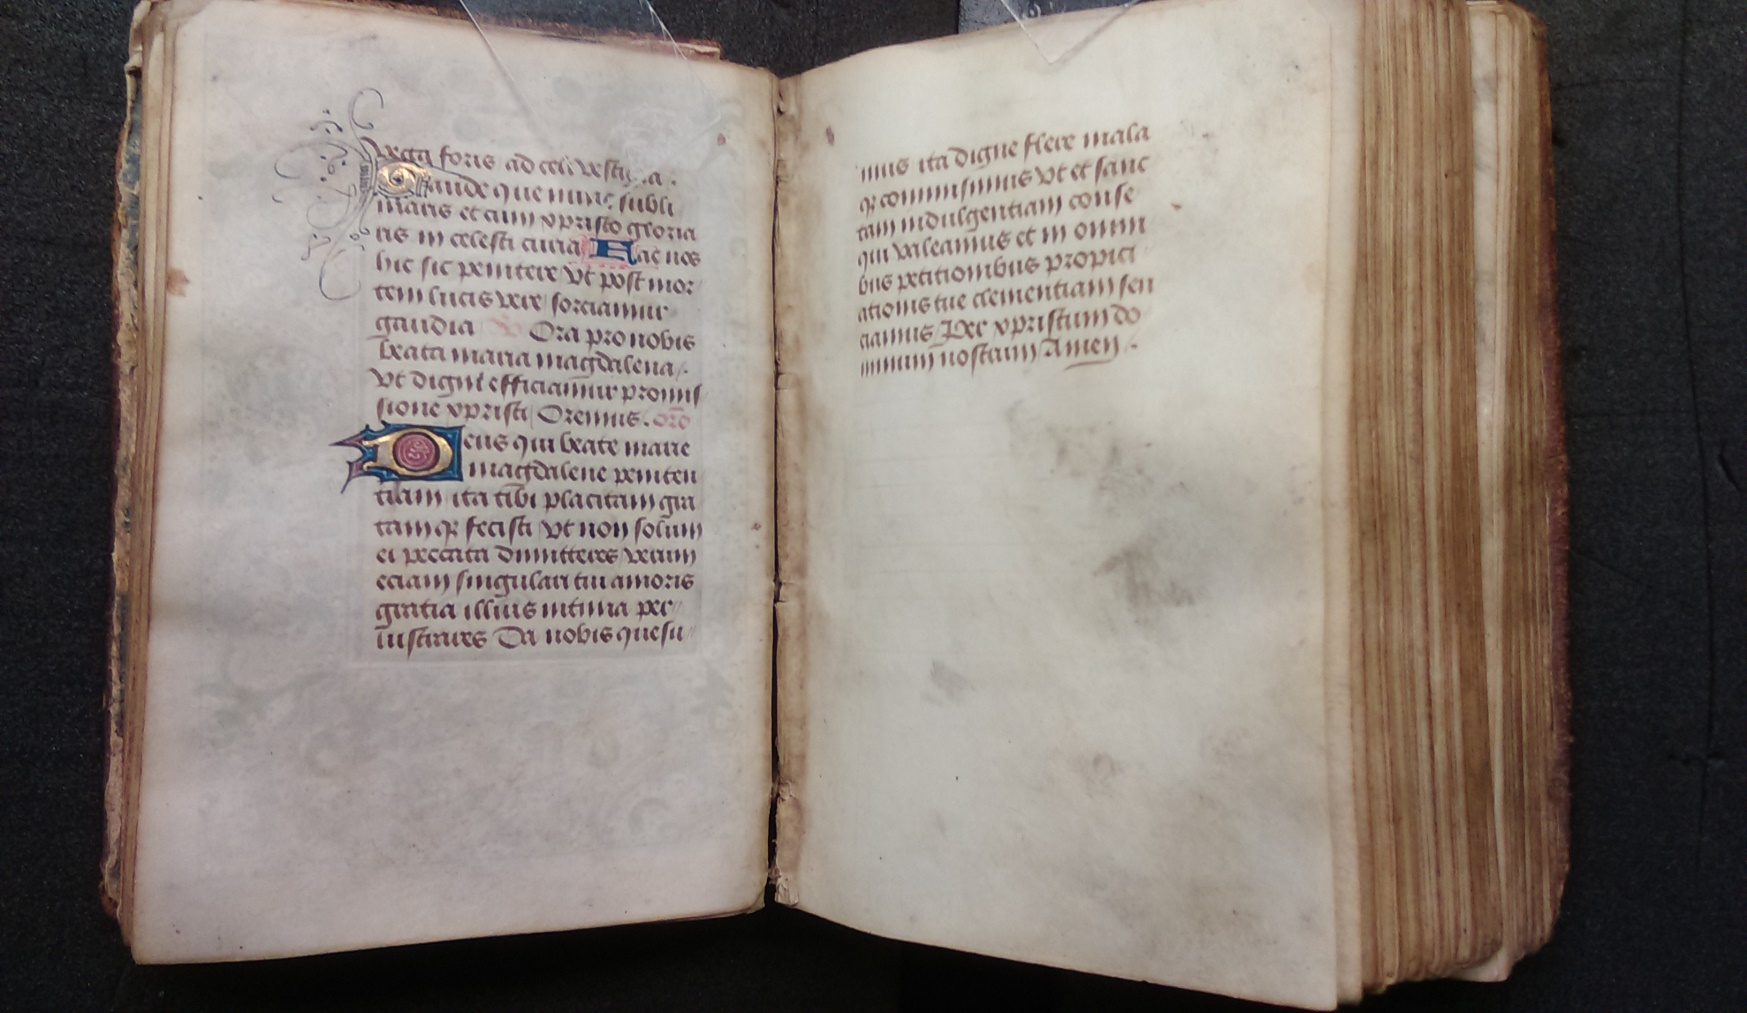 foris ad celi vestigia.
Gaude que nunc subli
maris et cum xpristo gloria
ris in celesti curia Fac nos
hic sic penitere vt post mor
tem lucis vere sorciamur
gaudia Ora pro nobis
beata maria magdalena.
vt digni efficiamur promis
sione xpristi Oremus. oro
Deus qui beate marie
magdalene peniten
tiam ita tibi placitam gra
tamq fecisti vt non solum
ei peccata dimitteres verum
eciam singulari tui amoris
gratia illius intima per
lustrares Da nobis quesu
mus ita digne flere mala
q commisimus vt et sanc
tam indulgentiam conse
qui valeamus et in omni
bus petitionibus propici
ationis tue clementiam sen
ciamus Per xpristum do
minum nostrum Amen.